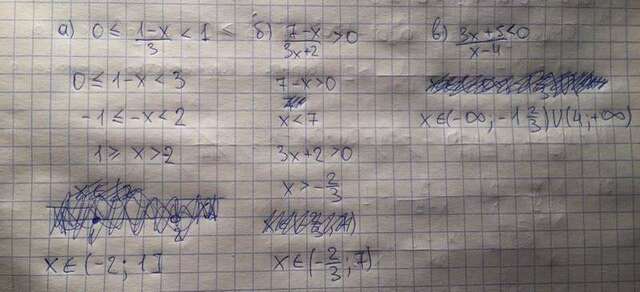 а) 0 ≤ (1-x)/3 < 1
0 ≤ 1-x < 3
-1 ≤ -x < 2
1 ≥ x > 2
x ∈ (-2; 1]
б) (7-x)/(3x+2) > 0
7-x > 0
x < 7
3x+2 > 0
x > -2/3
x ∈ (-2/3; 7)
в) (3x+5)/(x-4) < 0
x ∈ (-∞; -1 2/3) ∪ (4; +∞)